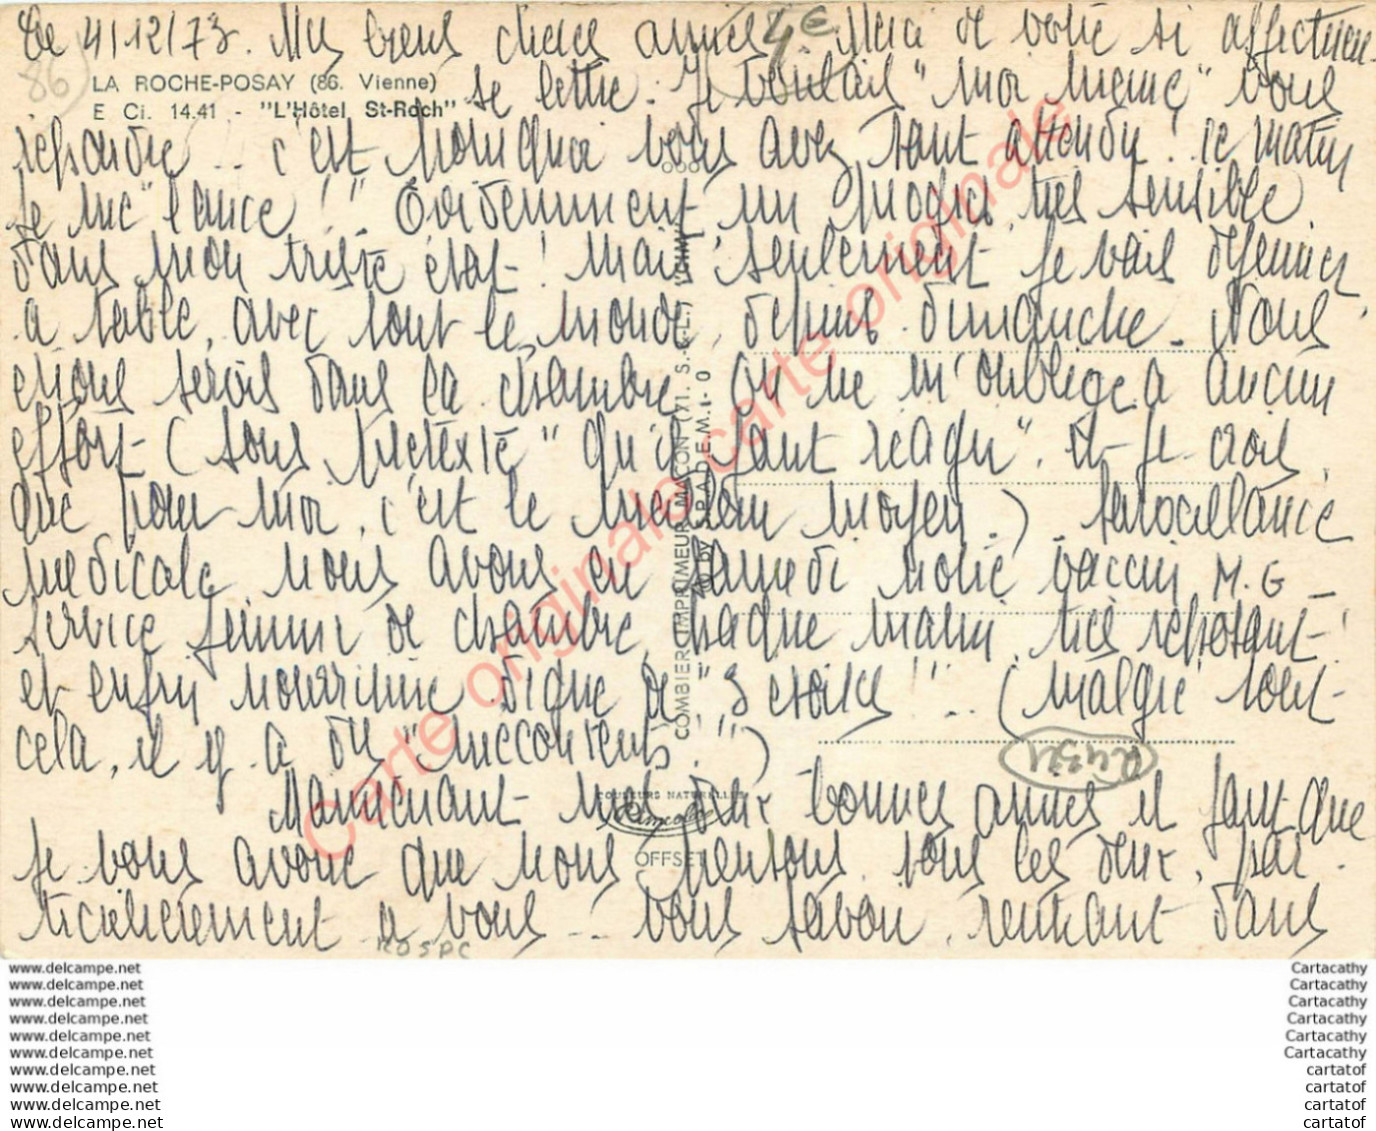 Le 4/12/73. Mes biens chères amies. Merci de votre si affectueu-
4€
86
LA ROCHE-POSAY (86. Vienne)
E Ci. 14.41 - "L'Hôtel St-Roch"
se lettre. Je voulais "moi même" vous
répondre... c'est pourquoi vous avez tant attendu! ce matin
je me "lance!". Evidemment un progrès très sensible
dans mon triste état! mais seulement je vais déjeuner
a table, avec tout le monde, depuis dimanche. Nous
étions servis dans la chambre on ne m'oblige a aucun
effort (sous prétexte "qu'il faut réagir". et je crois
que pour moi, c'est le meilleur moyen.) surveillance
médicale nous avons eu samedi notre vaccin M.G _
service femme de chambre, chaque matin très reposant!
et enfin nourriture digne de "3 étoiles"!... (malgré tout
cela, il y a des "mécontents"!!)
R4371
Maintenant mes deux bonnes amies il faut que
je vous avoue que nous pensons tous les deux, par-
ticulièrement a vous... vous savoir rentrant dans
KOSPC
COMBIER IMPRIMEUR MACON (71. S.-&-L.) "CIM"
by S.P.A.D.E.M. 1- 0
COULEURS NATURELLES
OFFSET
Carte originale carte originale
www.delcampe.net
www.delcampe.net
www.delcampe.net
www.delcampe.net
www.delcampe.net
www.delcampe.net
www.delcampe.net
www.delcampe.net
www.delcampe.net
www.delcampe.net
Cartacathy
Cartacathy
Cartacathy
Cartacathy
Cartacathy
Cartacathy
cartatof
cartatof
cartatof
cartatof